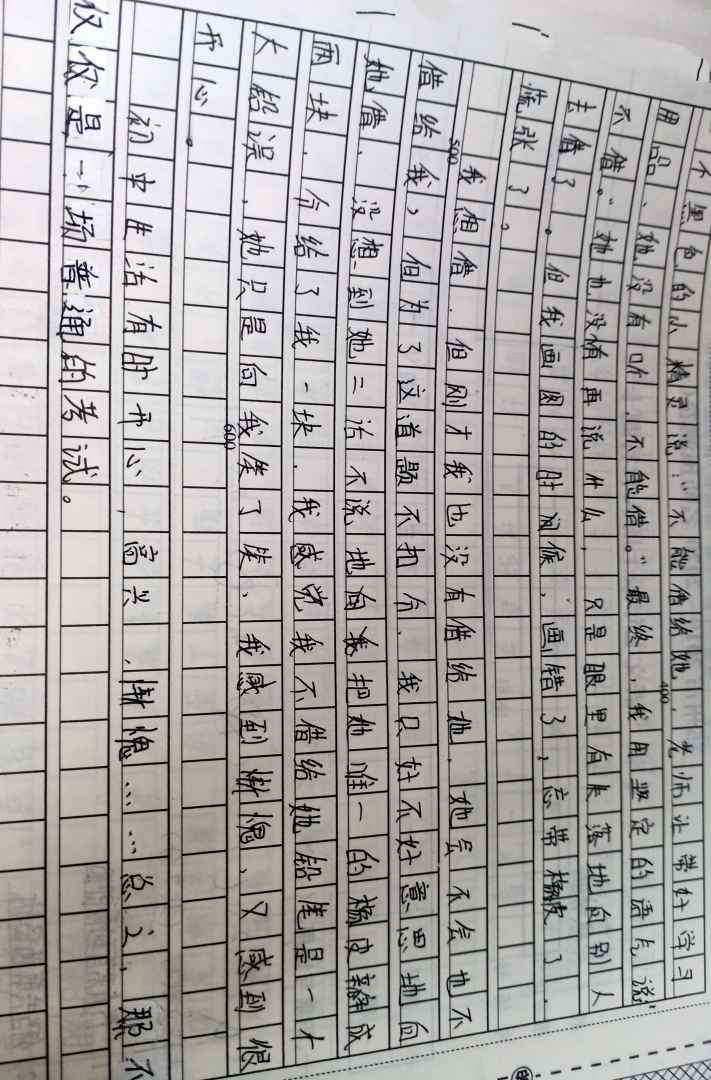 个黑色的小精灵说:“不能借给她,老师让带好学习
用品,她没有听,不能借。”最终,我用坚定的语气说“
不借。”她也没有再说什么,只是眼里有失落地向别人
400
去借了。但我画图的时间候,画错了,忘带橡皮了,
慌张了。
我想借,但刚才我也没有借给她,她会不会也不
500
借给我,但为了这道题不扣分,我只好不好意思地向
她借,没想到她二话不说地向我把她唯一的橡皮掰成
两块,分给了我一块,我感觉我不借给她铅笔是一个
大错误,她只是向我笑了笑,我感到惭愧,又感到很
600
开心。
初中生活有时开心,高兴,惭愧……总之,那不
仅仅是一场普通的考试。